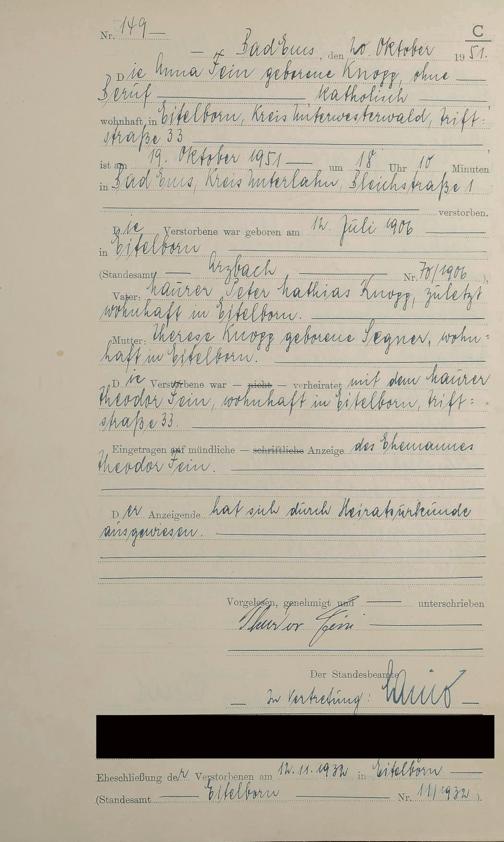 C
Nr. 149
Bad Ems, den 20. Oktober 1951.
Die Anna Fein geborene Knopp, ohne
Beruf katholisch
wohnhaft in Eitelborn, Kreis Unterwesterwald, Trift=
straße 33
ist am 19. Oktober 1951 um 18 Uhr 10 Minuten
in Bad Ems, Kreis Unterlahn, Bleichstraße 1
verstorben.
Die Verstorbene war geboren am 12. Juli 1906
in Eitelborn
(Standesamt Arzbach Nr. 70/1906),
Vater: Maurer Peter Mathias Knopp, zuletzt
wohnhaft in Eitelborn.
Mutter: Therese Knopp geborene Segner, wohn=
haft in Eitelborn.
Die Verstorbene war — nicht — verheiratet mit dem Maurer
Theodor Fein, wohnhaft in Eitelborn, Trift=
straße 33.
Eingetragen auf mündliche — schriftliche Anzeige des Ehemannes
Theodor Fein.
Der Anzeigende hat sich durch Heiratsurkunde
ausgewiesen.
Vorgelesen, genehmigt und unterschrieben
Theodor Fein
Der Standesbeamte
In Vertretung:
Eheschließung der Verstorbenen am 12.11.1932 in Eitelborn
(Standesamt Eitelborn Nr. 11/1932).